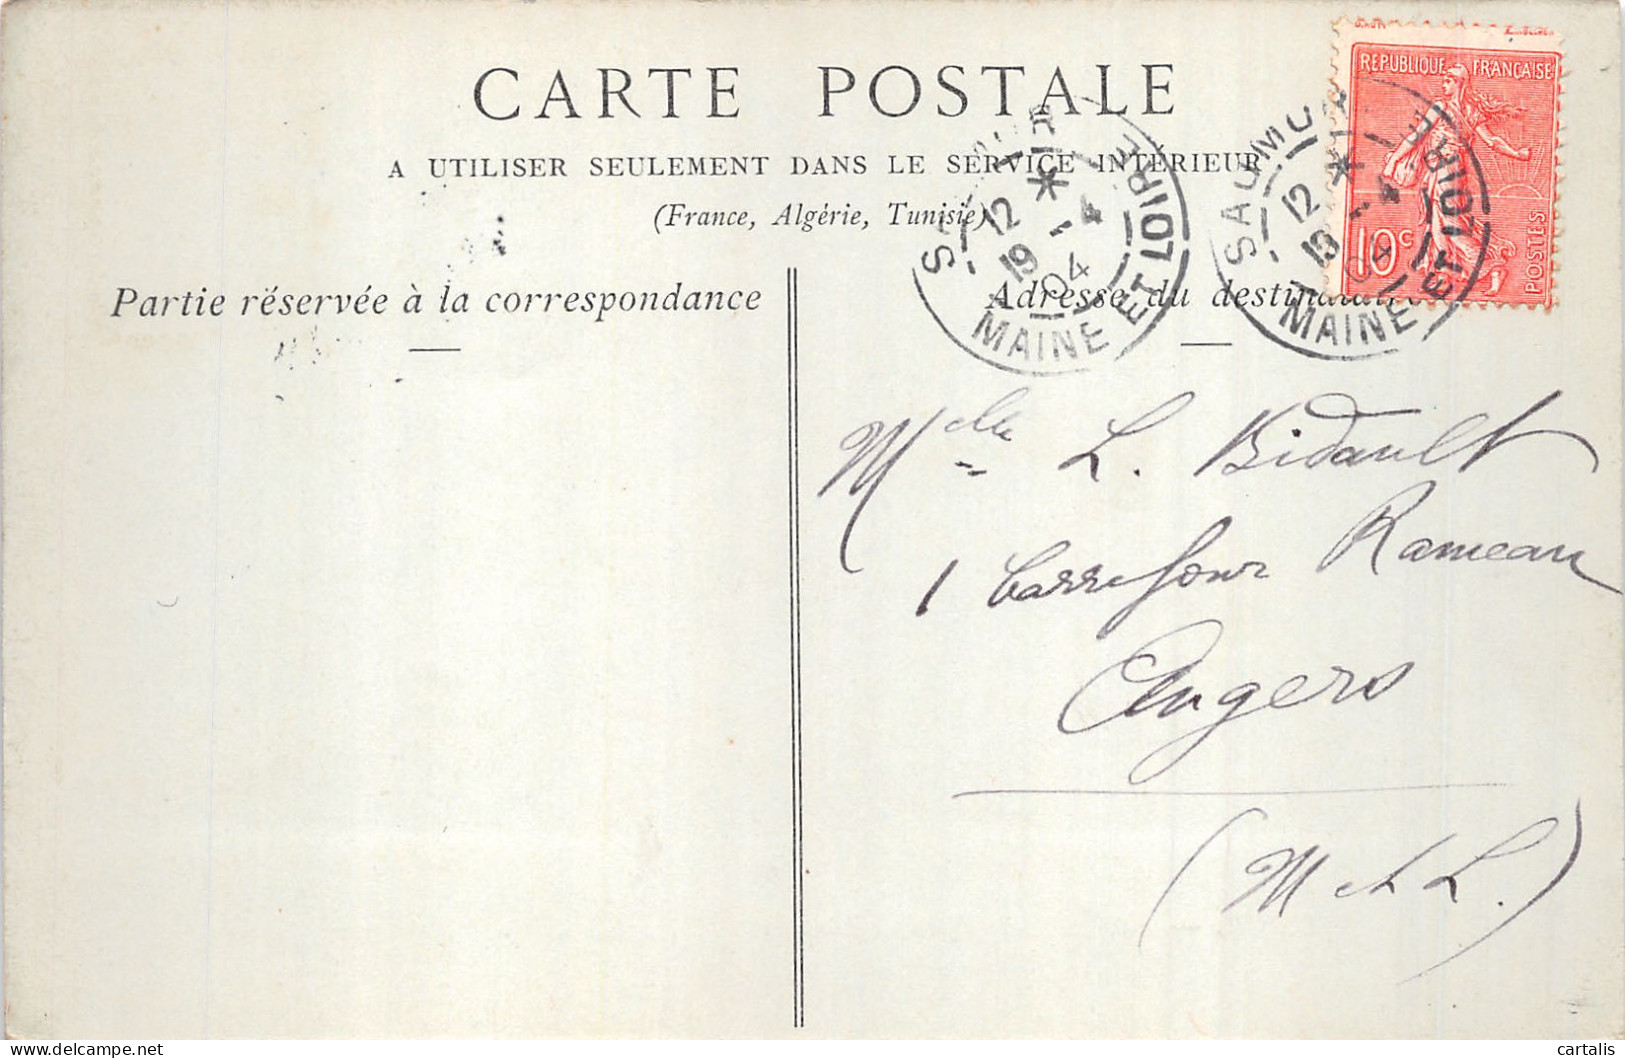 CARTE POSTALE
A UTILISER SEULEMENT DANS LE SERVICE INTÉRIEUR
(France, Algérie, Tunisie)
RÉPUBLIQUE FRANÇAISE
10c
POSTES
SAUMUR
12 * 1 - 4
19 04
MAINE ET LOIRE
SAUMUR
12 *
19 - 4
04
MAINE ET LOIRE
Partie réservée à la correspondance
Adresse du destinataire
Melle L. Bidault
1 Carrefour Rameau
Angers
(M et L.)
cartalis